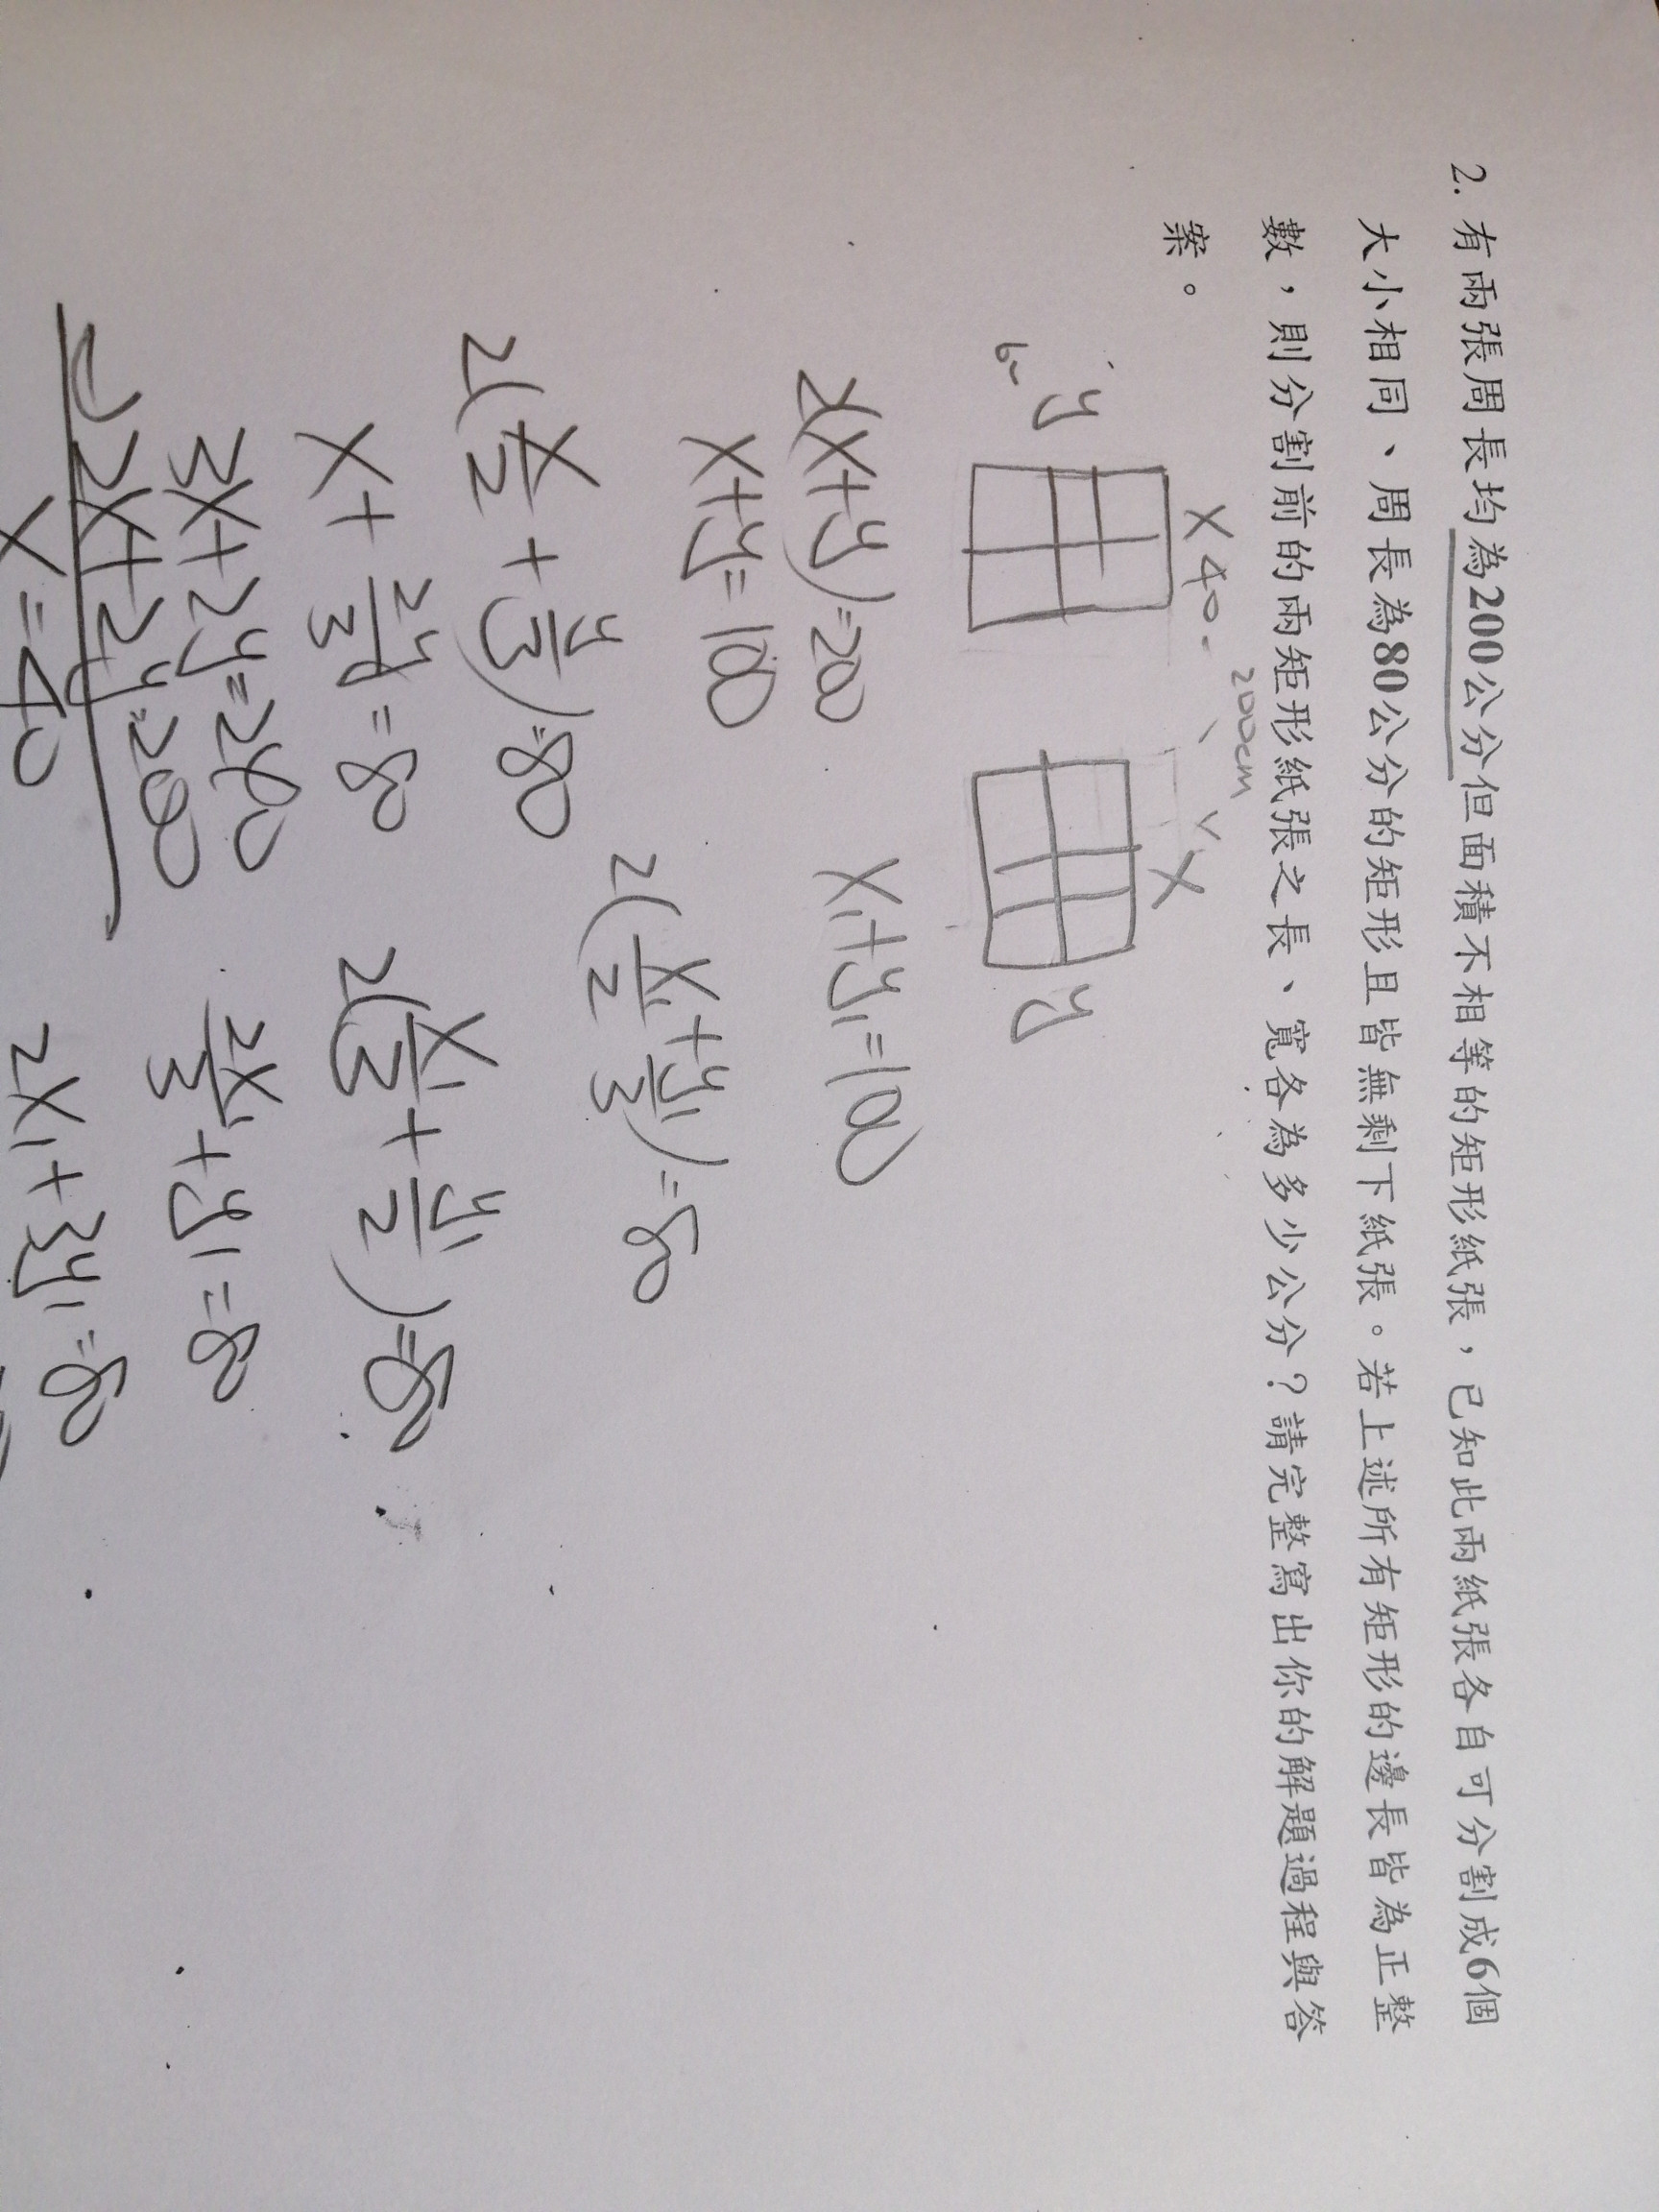 2. 有兩張周長均為200公分但面積不相等的矩形紙張，已知此兩紙張各自可分割成6個
大小相同、周長為80公分的矩形且皆無剩下紙張。若上述所有矩形的邊長皆為正整
數，則分割前的兩矩形紙張之長、寬各為多少公分？請完整寫出你的解題過程與答
案。
200cm
x 40
x
y
60
y
2(x+y)=200
x+y=100
2(x/2 + y/3)=80
x + 2y/3 = 80
3x+2y=240
-) 2x+2y=200
x=40
x₁+y₁=100
2(x₁/2+y₁/3)=80
2(x₁/3 + y₁/2)=80
2x₁/3 + y₁=80
2x₁+3y₁=80